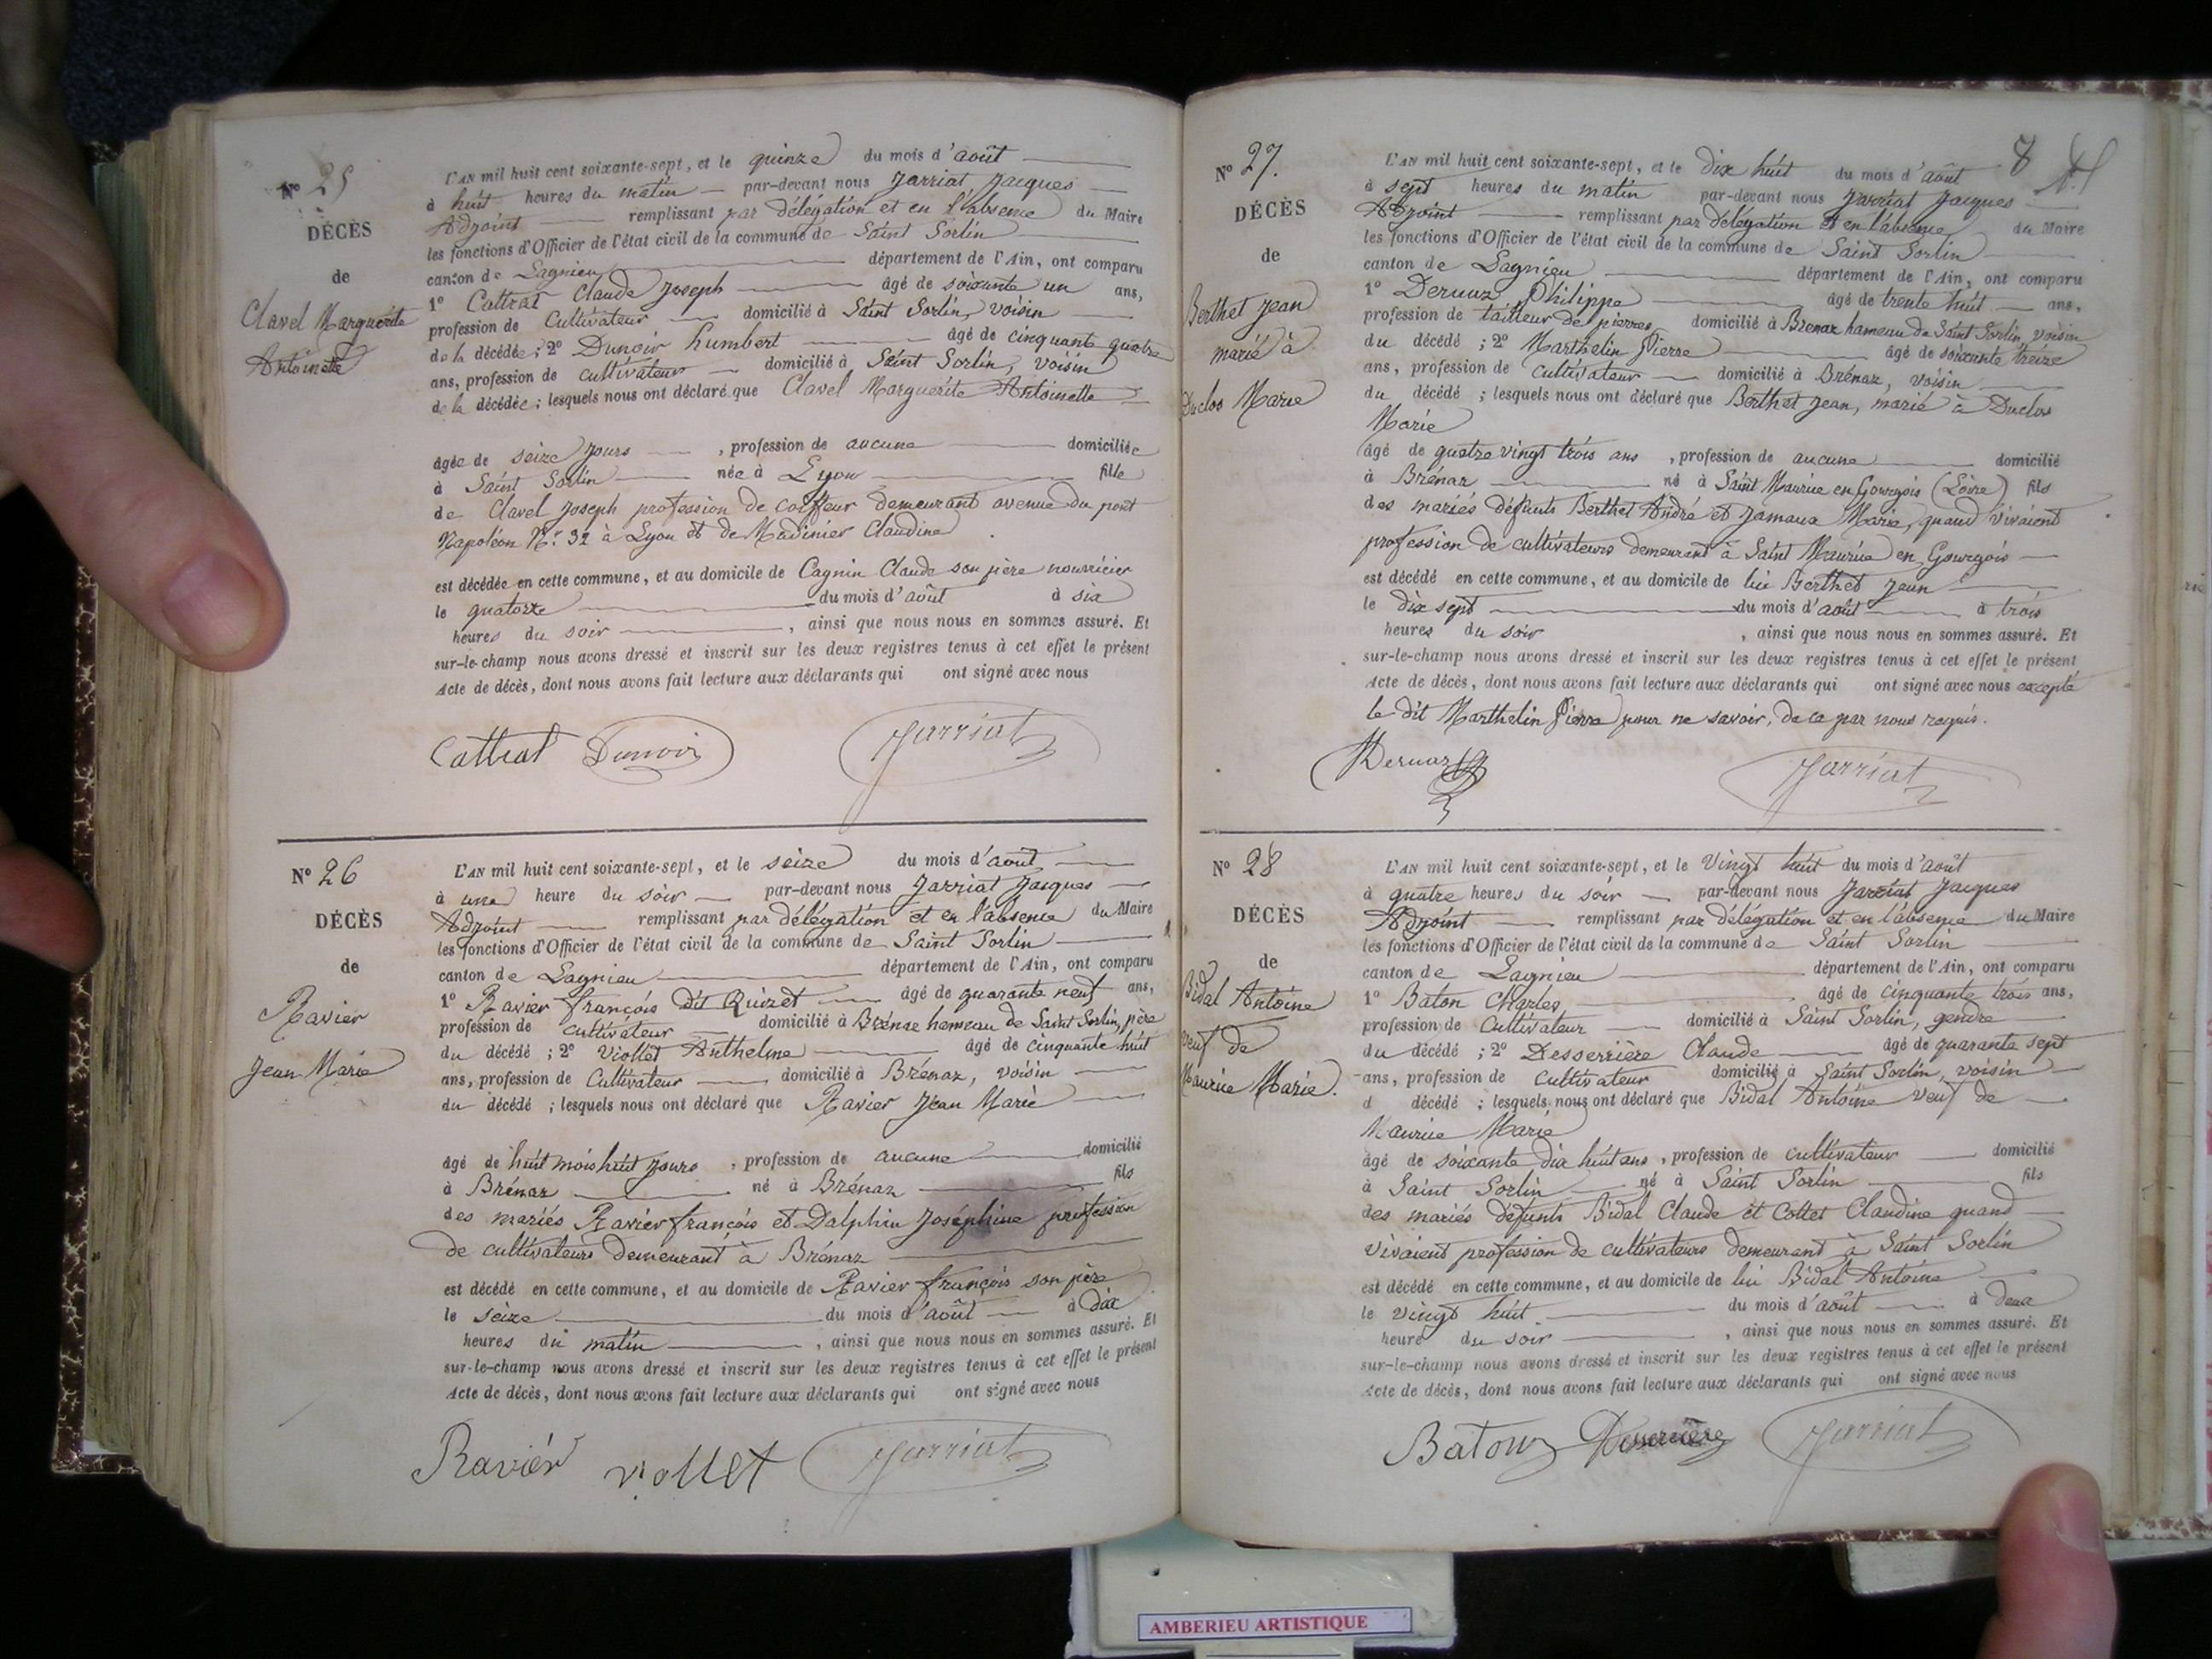 N° 25
DÉCÈS
de
Clavel Marguerite
Antoinette
L'AN mil huit cent soixante-sept, et le quinze du mois d'août
à huit heures du matin par-devant nous Jarriat Jacques
Adjoint remplissant par délégation et en l'absence du Maire
les fonctions d'Officier de l'état civil de la commune de Saint Sorlin
canton de Lagnieu département de l'Ain, ont comparu
1° Cattrat Claude Joseph âgé de soixante un ans,
profession de Cultivateur domicilié à Saint Sorlin, voisin
de la décédée ; 2° Dunoir humbert âgé de cinquante quatre
ans, profession de cultivateur domicilié à Saint Sorlin, voisin
de la décédée ; lesquels nous ont déclaré que Clavel Marguerite Antoinette
âgée de seize jours , profession de aucune domiciliée
à Saint Sorlin née à Lyon fille
de Clavel Joseph profession de coiffeur demeurant avenue du pont
Napoléon N° 32 à Lyon et de Madinier Claudine
est décédée en cette commune, et au domicile de Cagnin Claude son père nourricier
le quatorze du mois d'août à six
heures du soir , ainsi que nous nous en sommes assuré. Et
sur-le-champ nous avons dressé et inscrit sur les deux registres tenus à cet effet le présent
Acte de décès, dont nous avons fait lecture aux déclarants qui ont signé avec nous
Cattrat Dunoir Jarriat
N° 26
DÉCÈS
de
Ravier
Jean Marie
L'AN mil huit cent soixante-sept, et le seize du mois d'août
à une heure du soir par-devant nous Jarriat Jacques
Adjoint remplissant par délégation et en l'absence du Maire
les fonctions d'Officier de l'état civil de la commune de Saint Sorlin
canton de Lagnieu département de l'Ain, ont comparu
1° Ravier françois dit Quizet âgé de quarante neuf ans,
profession de cultivateur domicilié à Brénaz hameau de Saint Sorlin, père
du décédé ; 2° Viollet Anthelme âgé de cinquante huit
ans, profession de Cultivateur domicilié à Brénaz, voisin
du décédé ; lesquels nous ont déclaré que Ravier Jean Marie
âgé de huit mois huit jours , profession de aucune domicilié
à Brénaz né à Brénaz fils
des mariés Ravier françois et Dalphin Joséphine profession
de cultivateurs demeurant à Brénaz
est décédé en cette commune, et au domicile de Ravier françois son père
le seize du mois d'août à dix
heures du matin , ainsi que nous nous en sommes assuré. Et
sur-le-champ nous avons dressé et inscrit sur les deux registres tenus à cet effet le présent
Acte de décès, dont nous avons fait lecture aux déclarants qui ont signé avec nous
Ravier viollet Jarriat
8
N° 27.
DÉCÈS
de
Berthet Jean
marié à
Duclos Marie
L'AN mil huit cent soixante-sept, et le dix huit du mois d'août
à sept heures du matin par-devant nous Jarriat Jacques
Adjoint remplissant par délégation et en l'absence du Maire
les fonctions d'Officier de l'état civil de la commune de Saint Sorlin
canton de Lagnieu département de l'Ain, ont comparu
1° Dernaz Philippe âgé de trente huit ans,
profession de tailleur de pierres domicilié à Brenaz hameau de Saint Sorlin voisin
du décédé ; 2° Marthelin Pierre âgé de soixante treize
ans, profession de Cultivateur domicilié à Brénaz, voisin
du décédé ; lesquels nous ont déclaré que Berthet Jean, marié à Duclos
Marie
âgé de quatre vingt trois ans , profession de aucune domicilié
à Brénaz né à Saint Maurice en Gourgois (Loire) fils
des mariés défunts Berthet André et Jamaux Marie, quand vivaient
profession de cultivateurs demeurant à Saint Maurice en Gourgois
est décédé en cette commune, et au domicile de lui Berthet Jean
le dix sept du mois d'août à trois
heures du soir , ainsi que nous nous en sommes assuré. Et
sur-le-champ nous avons dressé et inscrit sur les deux registres tenus à cet effet le présent
Acte de décès, dont nous avons fait lecture aux déclarants qui ont signé avec nous excepté
le dit Marthelin Pierre pour ne savoir, de ce par nous requis.
Dernaz Jarriat
N° 28
DÉCÈS
de
Bidal Antoine
veuf de
Maurice Marie.
L'AN mil huit cent soixante-sept, et le Vingt huit du mois d'août
à quatre heures du soir par-devant nous Jarriat Jacques
Adjoint remplissant par délégation et en l'absence du Maire
les fonctions d'Officier de l'état civil de la commune de Saint Sorlin
canton de Lagnieu département de l'Ain, ont comparu
1° Baton Charles âgé de cinquante trois ans,
profession de Cultivateur domicilié à Saint Sorlin, gendre
du décédé ; 2° Desserrière Claude âgé de quarante sept
ans, profession de Cultivateur domicilié à Saint Sorlin, voisin
d décédé ; lesquels nous ont déclaré que Bidal Antoine veuf de
Maurice Marie
âgé de soixante dix huit ans , profession de cultivateur domicilié
à Saint Sorlin né à Saint Sorlin fils
des mariés défunts Bidal Claude et Cottet Claudine quand
vivaient profession de cultivateurs demeurant à Saint Sorlin
est décédé en cette commune, et au domicile de lui Bidal Antoine
le vingt huit du mois d'août à deux
heure du soir , ainsi que nous nous en sommes assuré. Et
sur-le-champ nous avons dressé et inscrit sur les deux registres tenus à cet effet le présent
Acte de décès, dont nous avons fait lecture aux déclarants qui ont signé avec nous
Baton Jarriat
AMBERIEU ARTISTIQUE